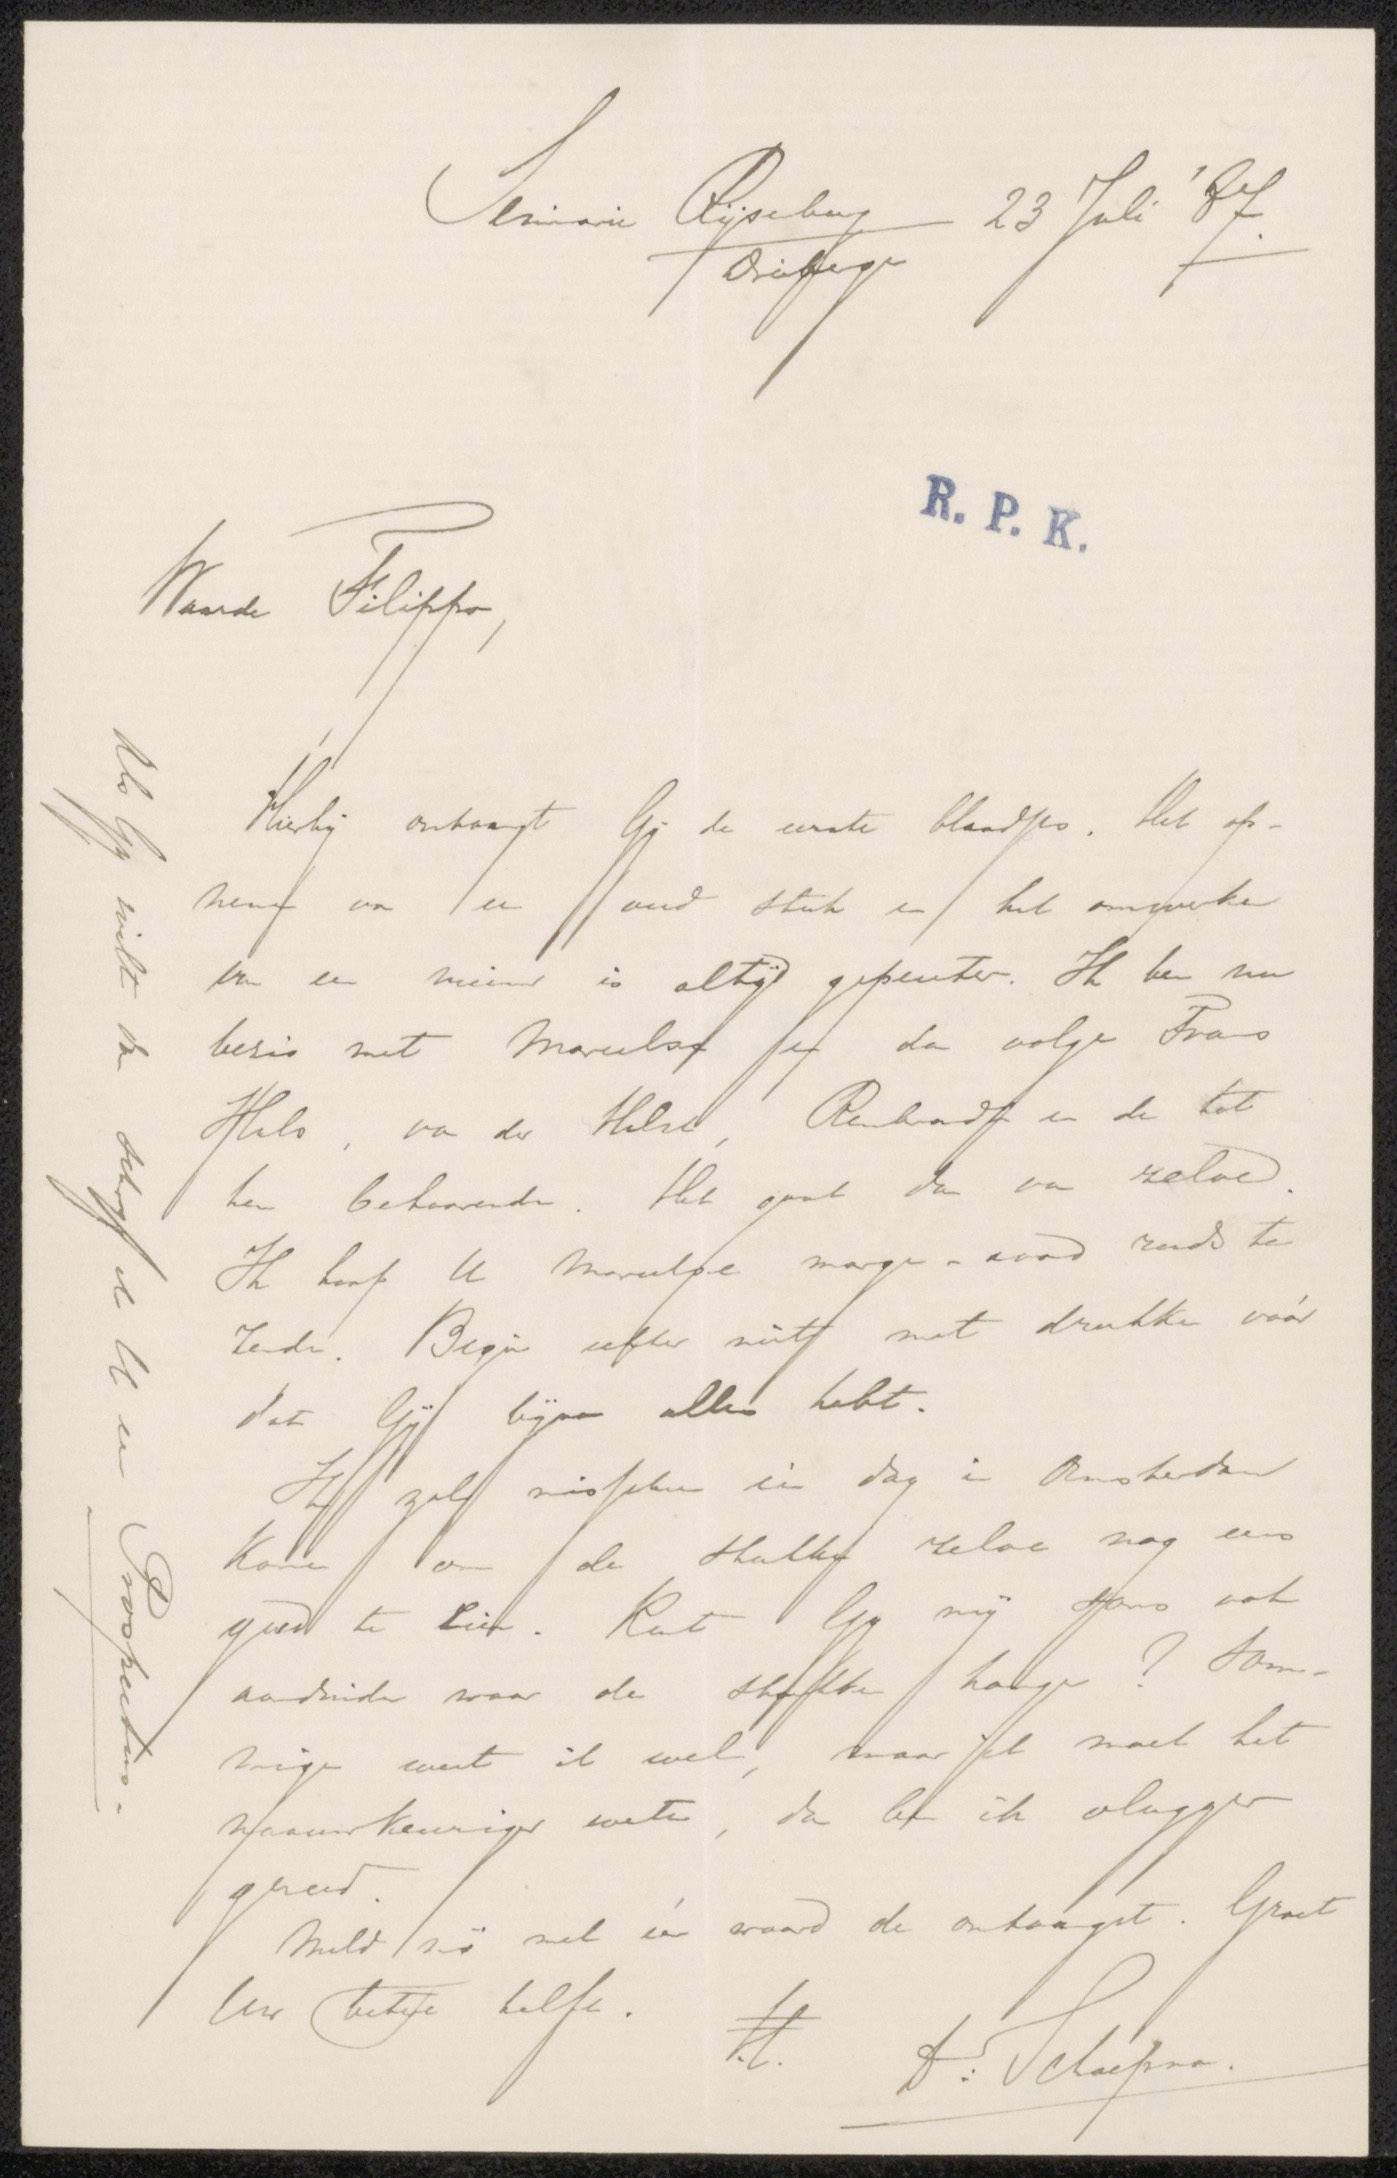 Seminarie Rijsenburg 23 Juli '87.
Driebergen
R. P. K.
Waarde Filippo,
Hierbij ontvangt Gij de eerste blaadjes. Het op-
nemen van een oud stuk en het omwerken
van een nieuw is altijd gepeuter. Ik ben nu
bezig met Marcelse en dan volgen Frans
Hals, van der Helst, Rembrandt en de tot
hen behoorenden. Het gaat dan van zelve.
Ik hoop U Marcelse morgen-avond reeds te
zenden. Begin echter niet met drukken vóór
dat Gij bijna alles hebt.
Ik zal misschien één dag in Amsterdam
komen om de stukken zelve nog eens
goed te zien. Kunt Gij mij soms ook
aanduiden waar de stukken hangen? Som-
mige weet ik wel, maar ik moet het
naauwkeuriger weten, dan ben ik vlugger
gereed.
Meld mij met één woord de ontvangst. Groet
Uw betere helft. tt. Dr. Schaepman.
Als Gij wilt dan schrijf ik U een Prospectus.